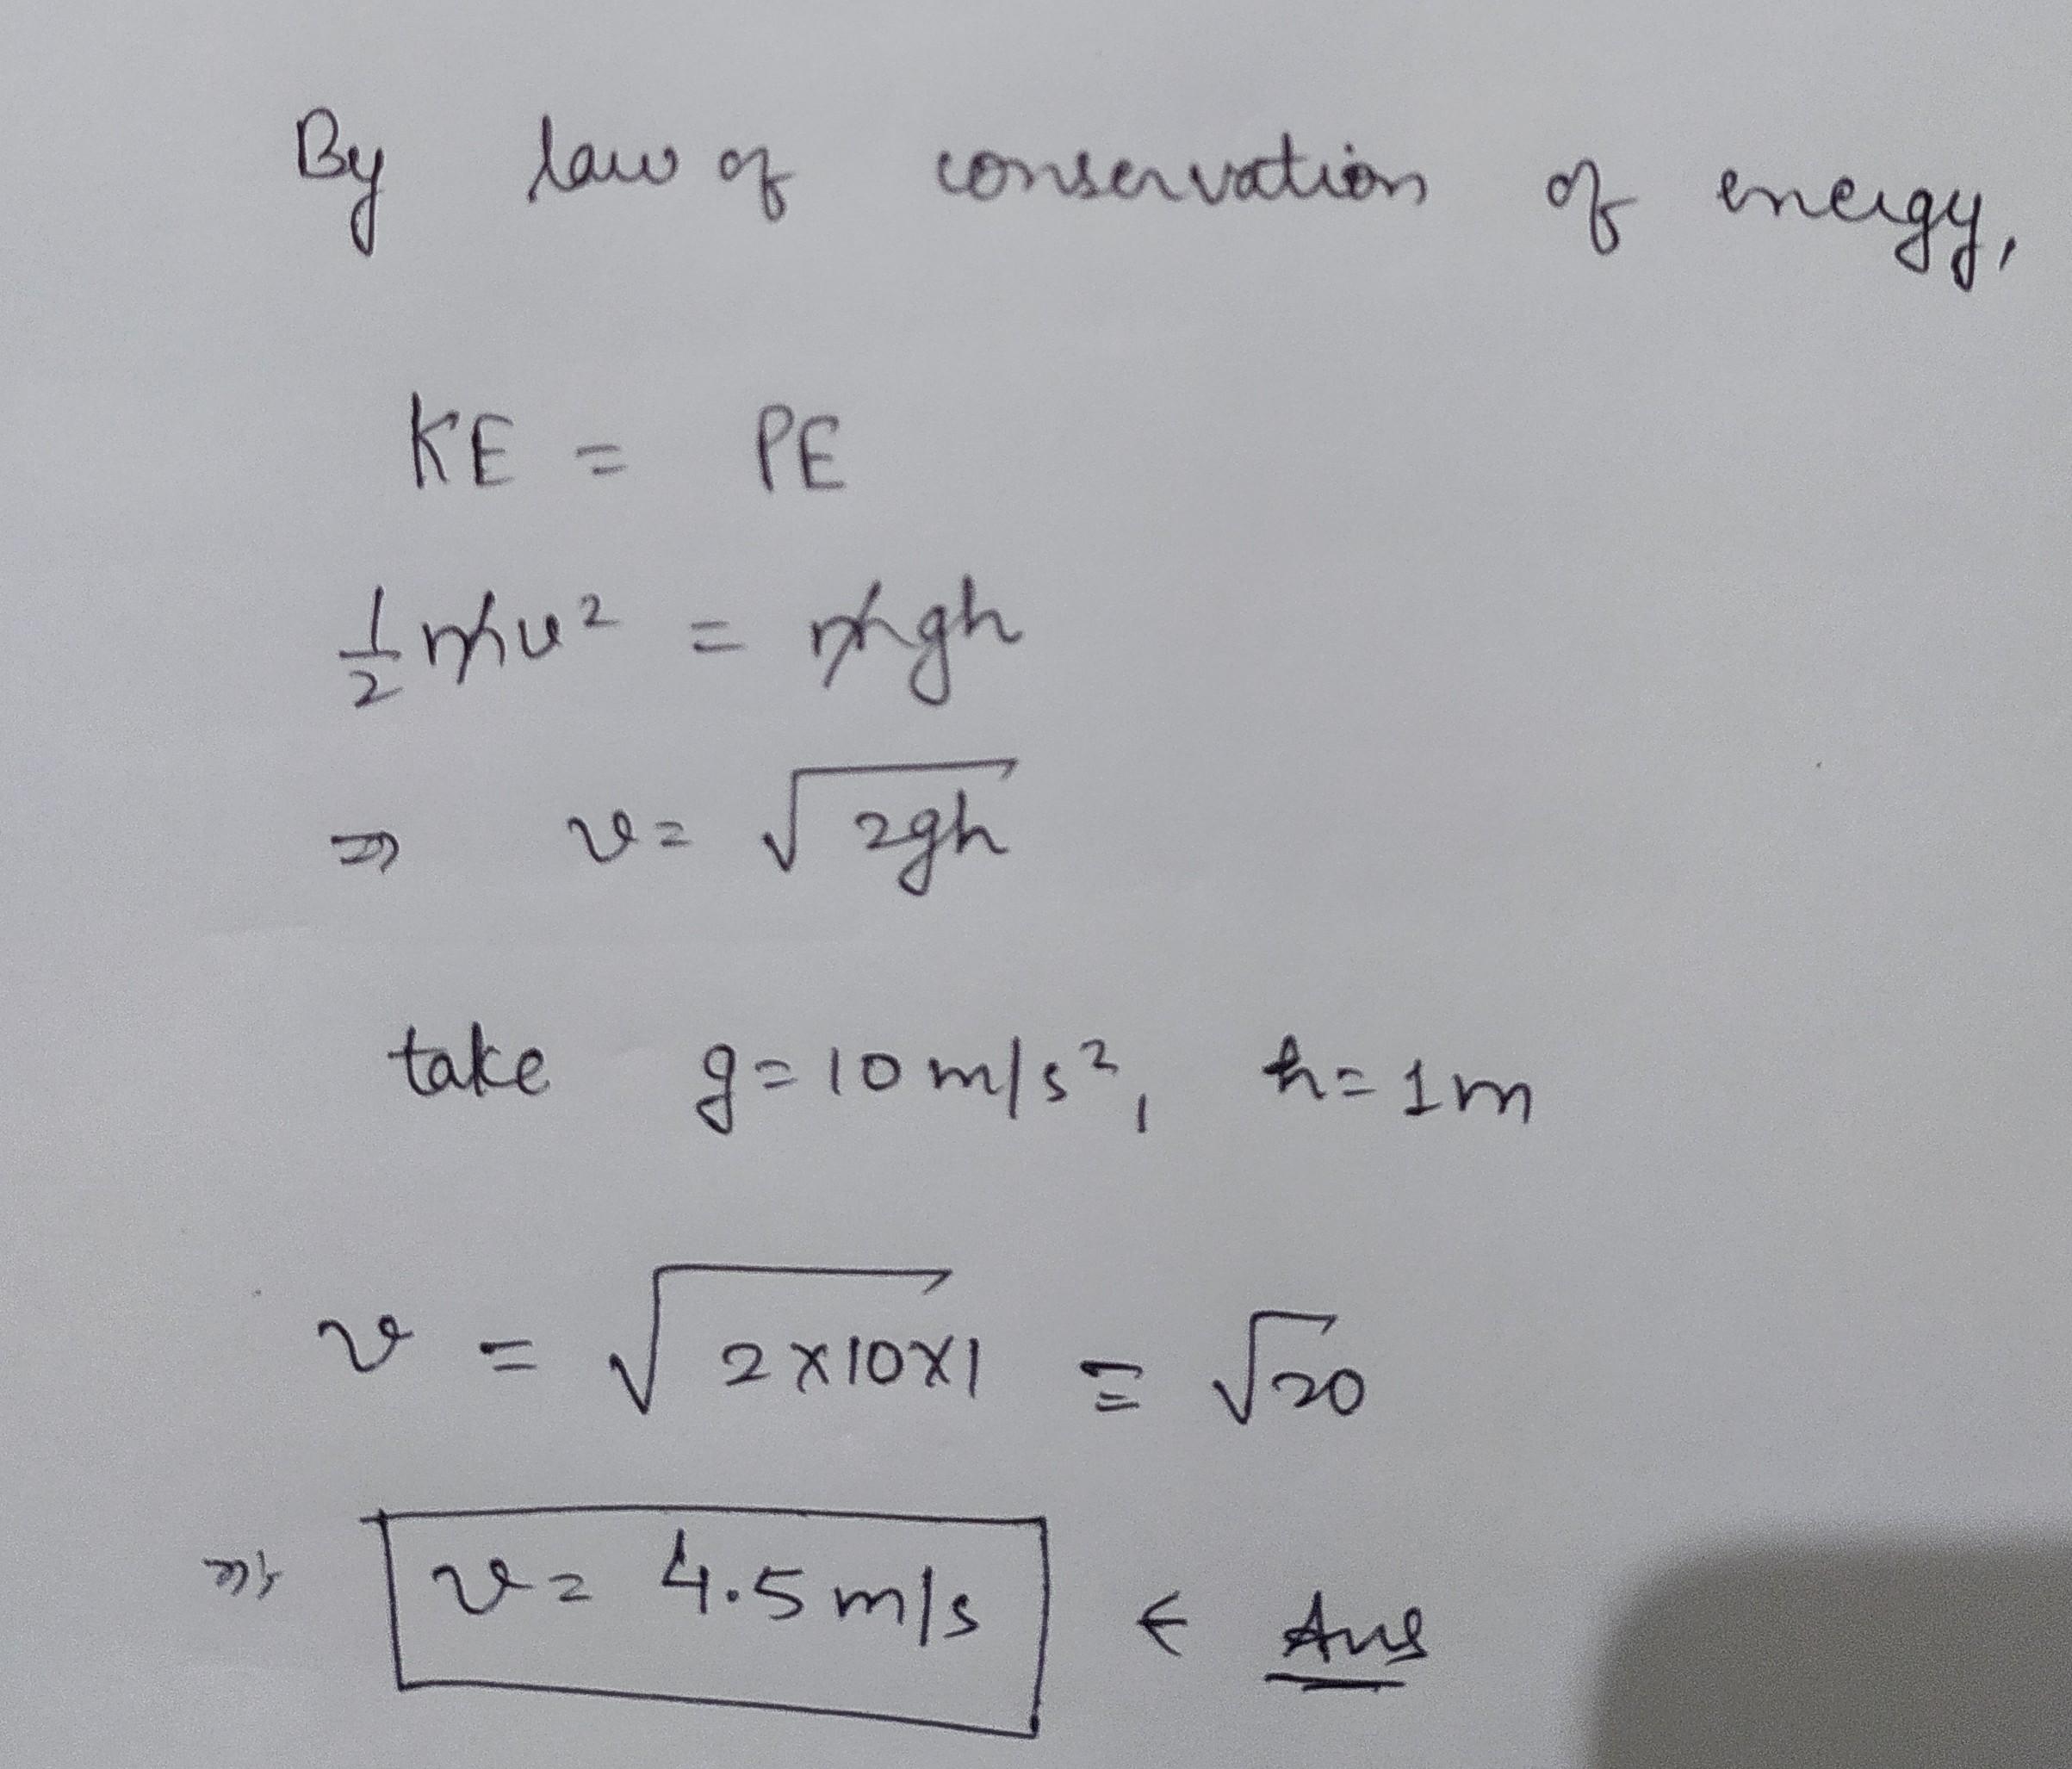 By law of conservation of energy,
KE = PE
1/2 mv² = mgh
⇒ v = √2gh
take g = 10 m/s², h = 1m
v = √2×10×1 = √20
⇒ v = 4.5 m/s ← Ans